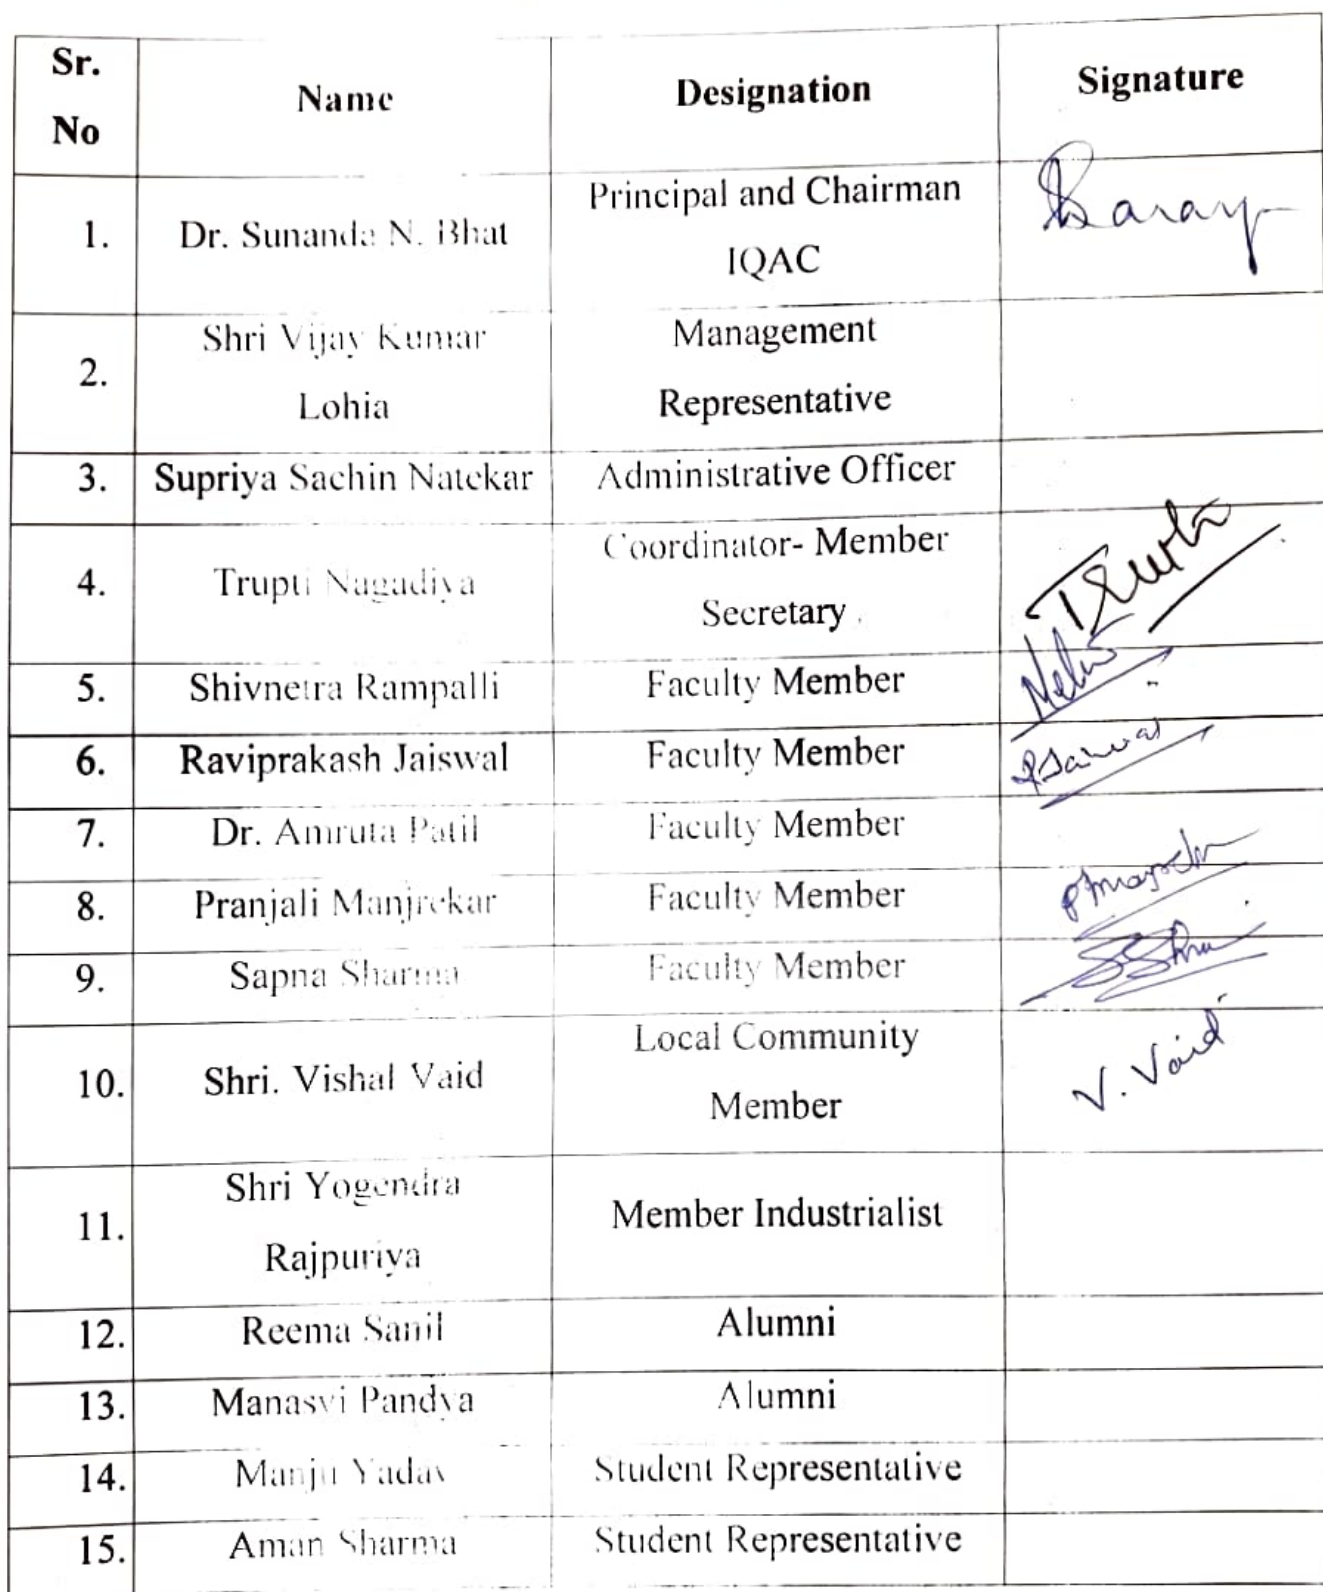 Sr. No Name Designation Signature
1. Dr. Sunanda N. Bhat Principal and Chairman IQAC
2. Shri Vijay Kumar Lohia Management Representative
3. Supriya Sachin Natekar Administrative Officer
4. Trupti Nagadiya Coordinator- Member Secretary Trupti
5. Shivnetra Rampalli Faculty Member
6. Raviprakash Jaiswal Faculty Member
7. Dr. Amruta Patil Faculty Member
8. Pranjali Manjrekar Faculty Member
9. Sapna Sharma Faculty Member
10. Shri. Vishal Vaid Local Community Member V. Vaid
11. Shri Yogendra Rajpuriya Member Industrialist
12. Reema Sanil Alumni
13. Manasvi Pandya Alumni
14. Manju Yadav Student Representative
15. Aman Sharma Student Representative